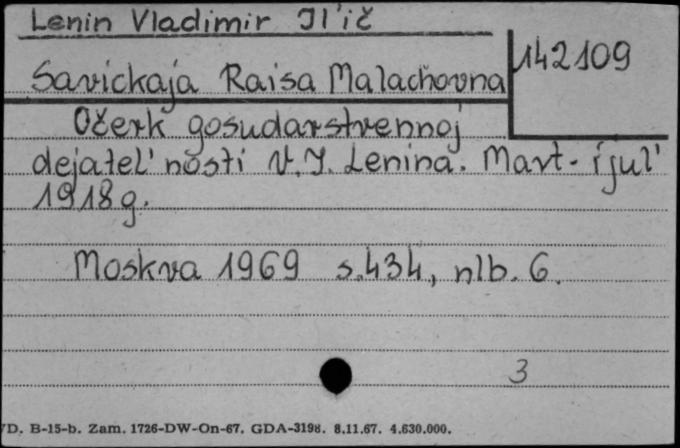 Lenin Vladimir Il'ič
142109
Savickaja Raisa Malachovna
Očerk gosudarstvennoj
dejatel'nosti V.I. Lenina. Mart-ijul'
1918g.
Moskva 1969 s.434, nlb. 6.
3
D. B-15-b. Zam. 1726-DW-On-67. GDA-3198. 8.11.67. 4.630.000.